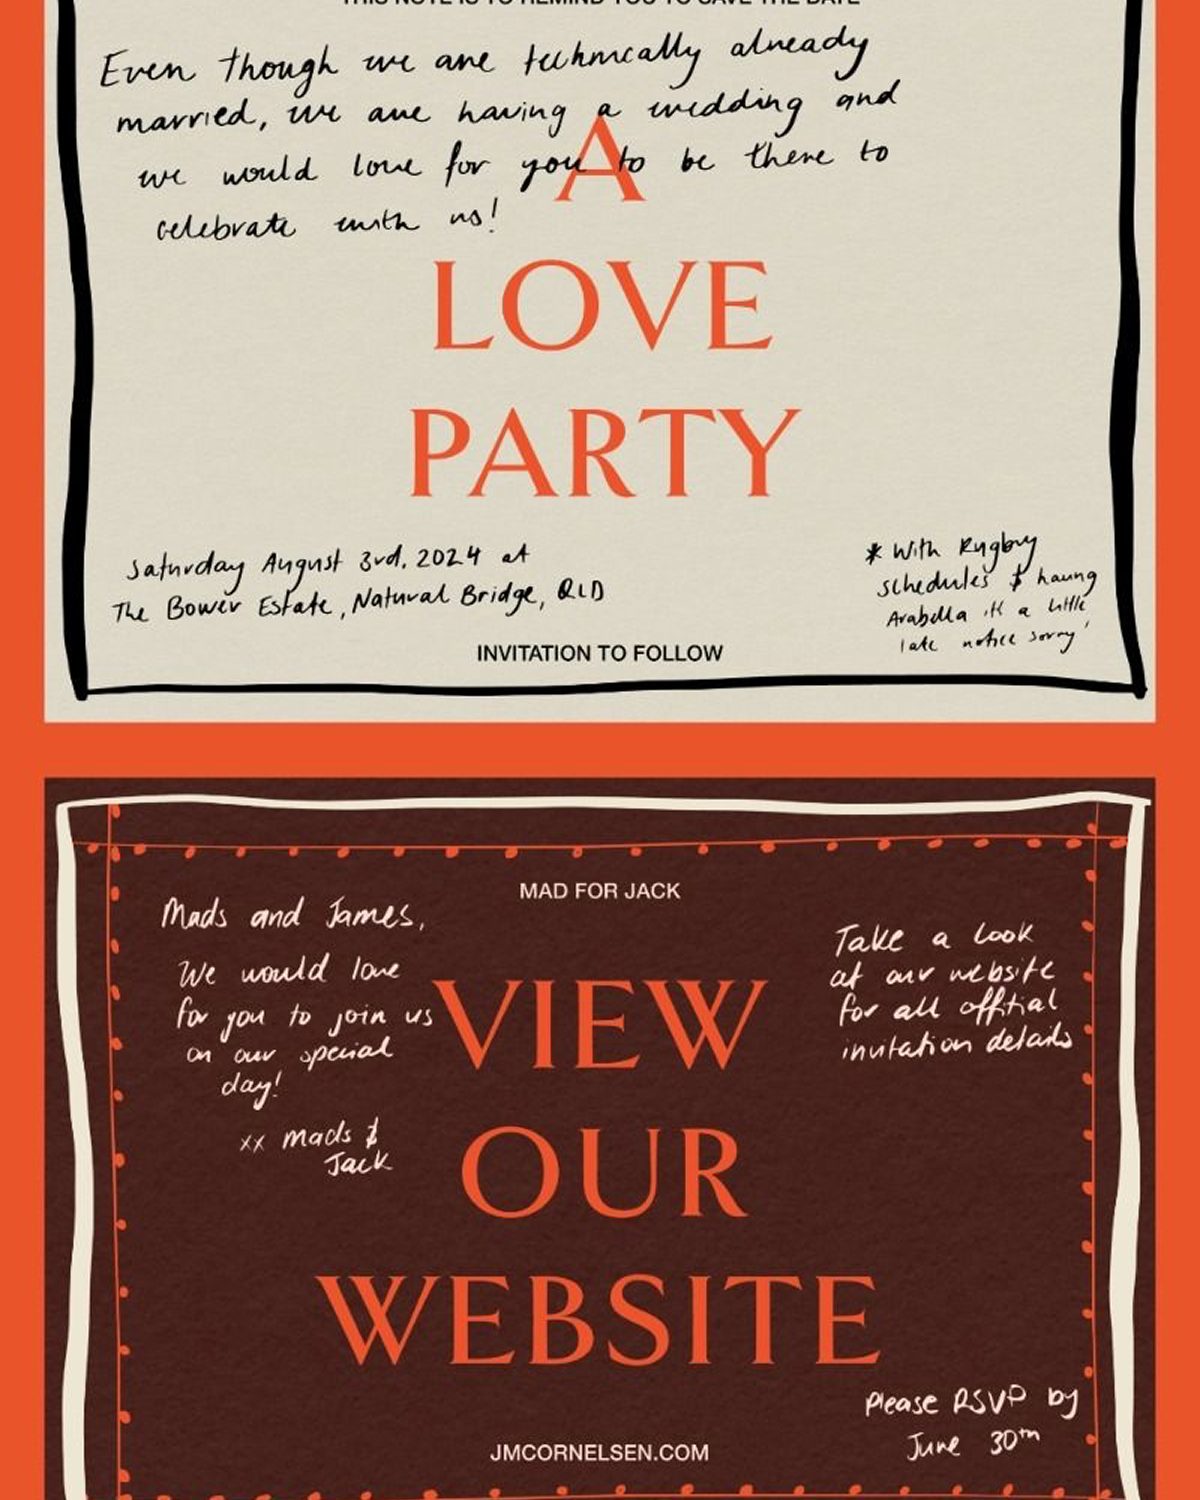 THIS NOTE IS TO REMIND YOU TO SAVE THE DATE
Even though we are technically already
married, we are having a wedding and
we would love for you to be there to
celebrate with us!
A
LOVE
PARTY
Saturday August 3rd, 2024 at
The Bower Estate, Natural Bridge, QLD
* With Rugby
schedules & having
Arabella it's a little
late notice sorry!
INVITATION TO FOLLOW
MAD FOR JACK
Mads and James,
We would love
for you to join us
on our special
day!
xx Mads &
Jack
Take a look
at our website
for all offitial
invitation details
VIEW
OUR
WEBSITE
Please RSVP by
June 30th
JMCORNELSEN.COM